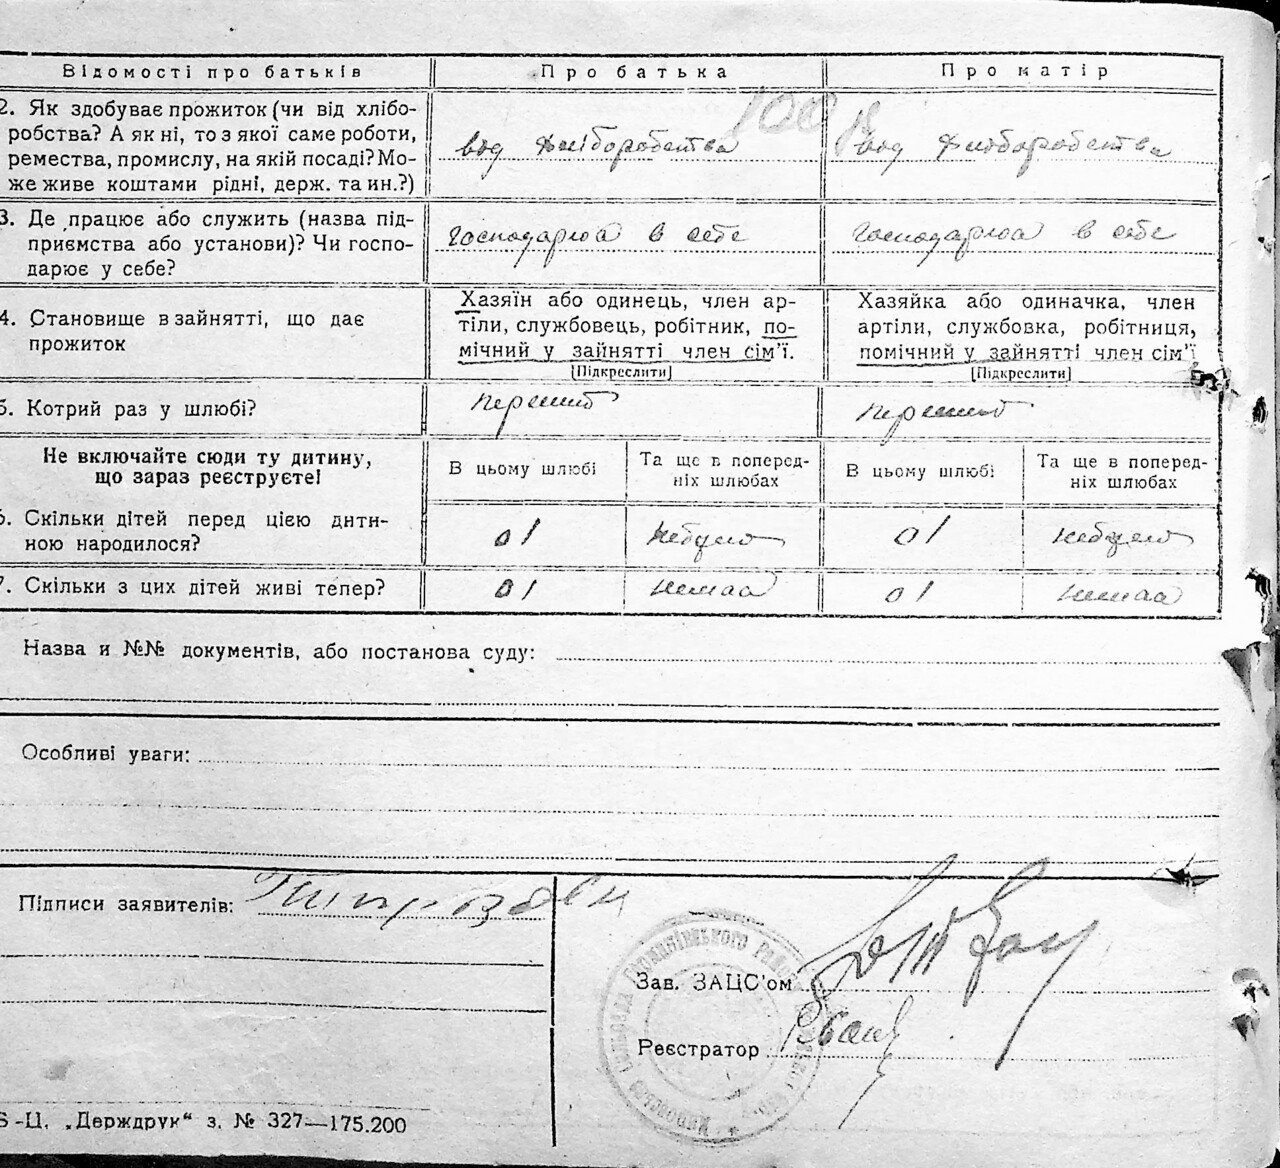 Відомості про батьків Про батька Про матір
2. Як здобуває прожиток (чи від хлібо-
робства? А як ні, то з якої саме роботи,
ремества, промислу, на якій посаді? Мо-
же живе коштами рідні, держ. та ин.?)
вод хліборобства вод хліборобства
3. Де працює або служить (назва під-
приємства або установи)? Чи госпо-
дарює у себе?
господарюа в себе господарюа в себе
4. Становище в зайнятті, що дає
прожиток
Хазяїн або одинець, член ар-
тіли, службовець, робітник, по-
мічний у зайнятті член сім'ї.
[Підкреслити]
Хазяйка або одиначка, член
артіли, службовка, робітниця,
помічний у зайнятті член сім'ї
[Підкреслити]
5. Котрий раз у шлюбі?
перший перший
Не включайте сюди ту дитину,
що зараз реєструєте!
В цьому шлюбі Та ще в поперед-
ніх шлюбах
В цьому шлюбі Та ще в поперед-
ніх шлюбах
6. Скільки дітей перед цією дити-
ною народилося?
01 небуло 01 небуло
7. Скільки з цих дітей живі тепер?
01 немаа 01 немаа
Назва и №№ документів, або постанова суду:
Особливі уваги:
Підписи заявителів:
Зав. ЗАЦС'ом
Реєстратор
Ц. „Держдрук“ з. № 327—175.200